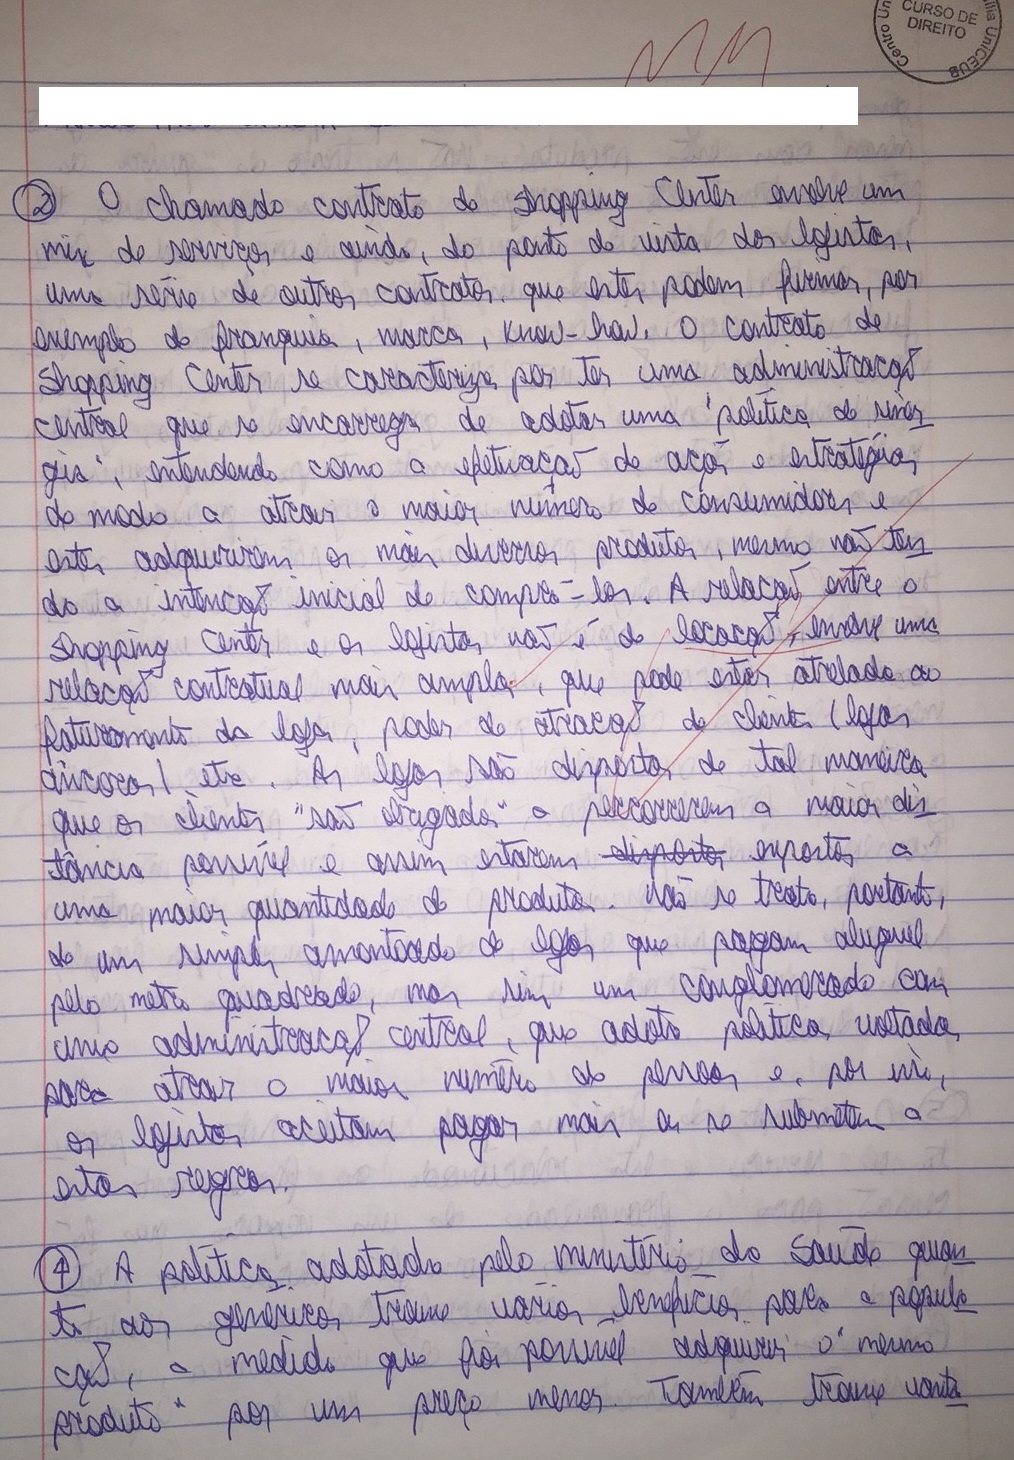 Centro Un
CURSO DE
DIREITO
ília UniCEUB
MM
② O chamado contrato de Shopping Center envolve um
mix de serviços e ainda, do ponto de vista dos lojistas,
uma série de outros contratos que estes podem firmar, por
exemplo de franquia, marca, know-how. O contrato de
Shopping Center se caracteriza por ter uma administração
central que se encarrega de adotar uma "política de siner
gia", entendendo como a efetivação de ações e estratégias
de modo a atrair o maior número de consumidores e
estes adquirirem os mais diversos produtos, mesmo não ten
do a intenção inicial de comprá-los. A relação entre o
Shopping Center e os lojistas não é de locação, envolve uma
relação contratual mais ampla, que pode estar atrelada ao
faturamento da loja, poder de atração de clientes (lojas
âncoras) etc. As lojas são dispostas de tal maneira
que os clientes "são obrigados" a percorrerem a maior dis
tância possível e assim estarem dispostos expostos a
uma maior quantidade de produtos. Não se trata, portanto,
de um simples amontoado de lojas que pagam aluguel
pelo metro quadrado, mas sim um conglomerado com
uma administração central, que adota política voltada
para atrair o maior número de pessoas e, por isso,
os lojistas aceitam pagar mais ou se submetem a
estas regras.
④ A política adotada pelo Ministério da Saúde quan
to aos genéricos trouxe vários benefícios para a popula
ção, a medida que foi possível adquirir o "mesmo
produto" por um preço menor. Também trouxe vanta